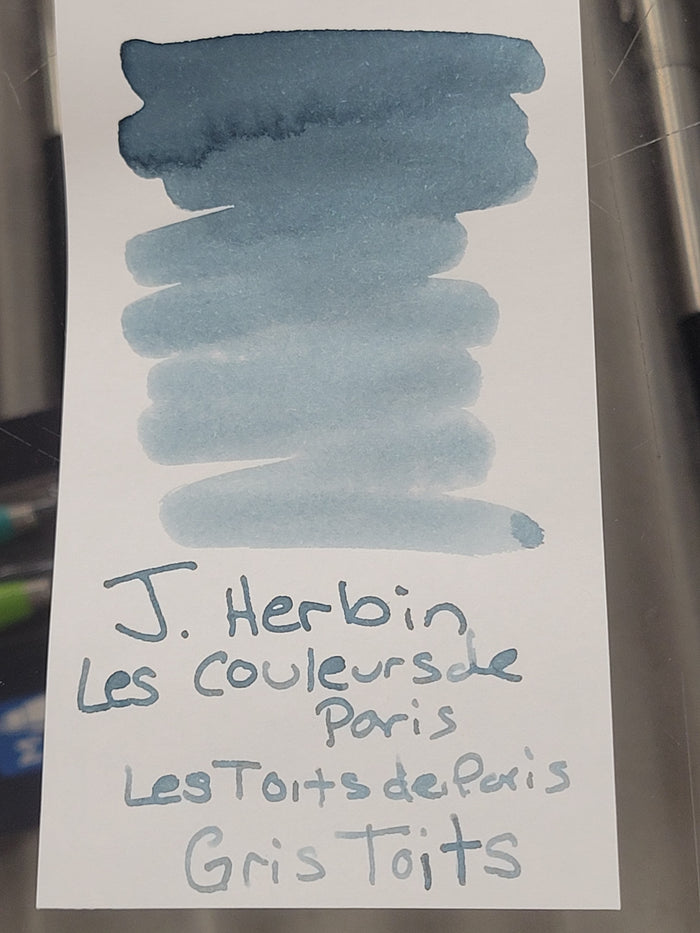 J. Herbin
Les Couleurs de
Paris
Les Toits de Paris
Gris Toits